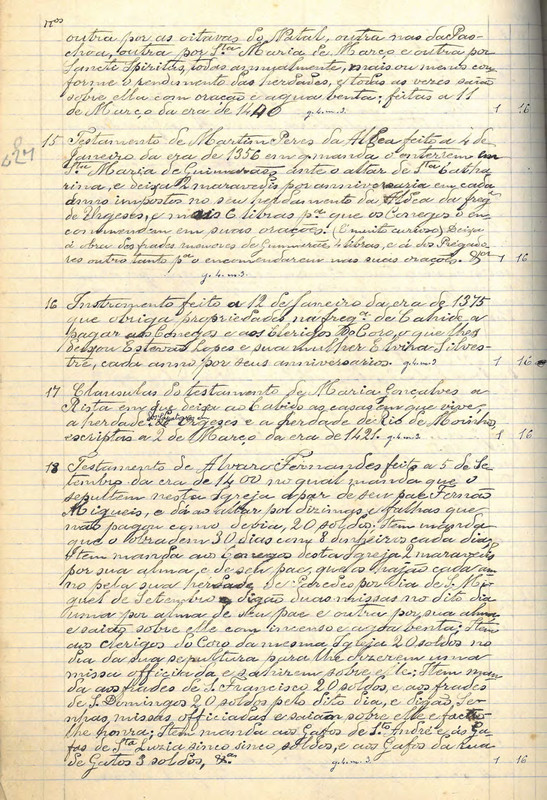 nos
outra por as oitavas do Natal, outra nas da Pas-
choa, outra por Sta Maria de Março e outra por
Sancto Spiritus, todas annualmente, mais ou menos con-
forme o rendimento das herdades, e todas as vezes saião
sobre ella com oração e agua benta; feitas a 11
de Março da era de 1440 g. 4. m. 3. 1 16
15 Testamento de Martim Peres da Aldea feito a 4 de
Janeiro da era de 1356 em q manda o enterrem em
Sta Maria de Guimarães ante o altar de Sta Catha
rina, e deixa 2 maravedis por anniversario em cada
anno impostos no seu herdamento da Aldea da fregª
de Urgeses, e mais 6 libras pª que os Conegos o en
commendem em suas orações. (É muito curioso) Deixa
á obra dos frades menores de Guimarães 4 libras, e á dos Prégado-
res outro tanto pª o encomendarem nas suas orações. 1 16
g. 4. m. 3.
16 Instromento feito a 12 de Janeiro da era de 1375
que obriga propriedades na fregª de Cahide a
pagar aos Conegos e aos Clerigos do Coro, o que lhes
deixou Estevão Lopes e sua mulher Elvira Silves-
tre, cada anno por seus anniversarios. g. 4. m. 3. 1 16
17 Clausulas do testamento de Maria Gonçalves a
Rista em que deixa ao Cabido as casas em que vive,
a herdade de Urgeses e a herdade da Rio de Moinho,
escriptas a 2 de Março da era de 1421. g. 4. m. 3. 1 16
18 Testamento de Alvaro Fernandes feito a 5 de Se-
tembro da era de 1400 no qual manda que o
sepultem nesta Igreja a par de seu pae Fernão
Migueis, e dá ao altar por dizimos e falhas que
mal pagou como devia, 20 soldos; Item manda
que o obradem 30 dias com 8 dinheiros cada dia;
Item manda aos Conegos desta Igreja 2 maravedis
por sua alma, e de seu pae, que os hajão cada an-
no pela sua herdade de Paredes por dia de S. Mi-
guel de Setembro e digão duas missas no dito dia
uma por alma de seu pae e outra por sua alma
e saião sobre elle com incenso e agoa benta; Item
aos clerigos do Coro da mesma Igreja 20 soldos no
dia da sua sepultura para lhe dizerem uma
missa officiada e sahirem sobre elle; Item man
da aos frades de S. Francisco 20 soldos, e aos frades
de S. Domingos 20 soldos pelo dito dia, e digão, se-
nhas, missas officiadas e saião sobre elle e fação
lhe honra; Item manda aos Gafos de Sto André e ás Ga-
fas de Sta Luzia sinco sinco soldos, e aos Gafos da Rua
de Gatos 3 soldos, &ª. g. 4. m. 3. 1 16